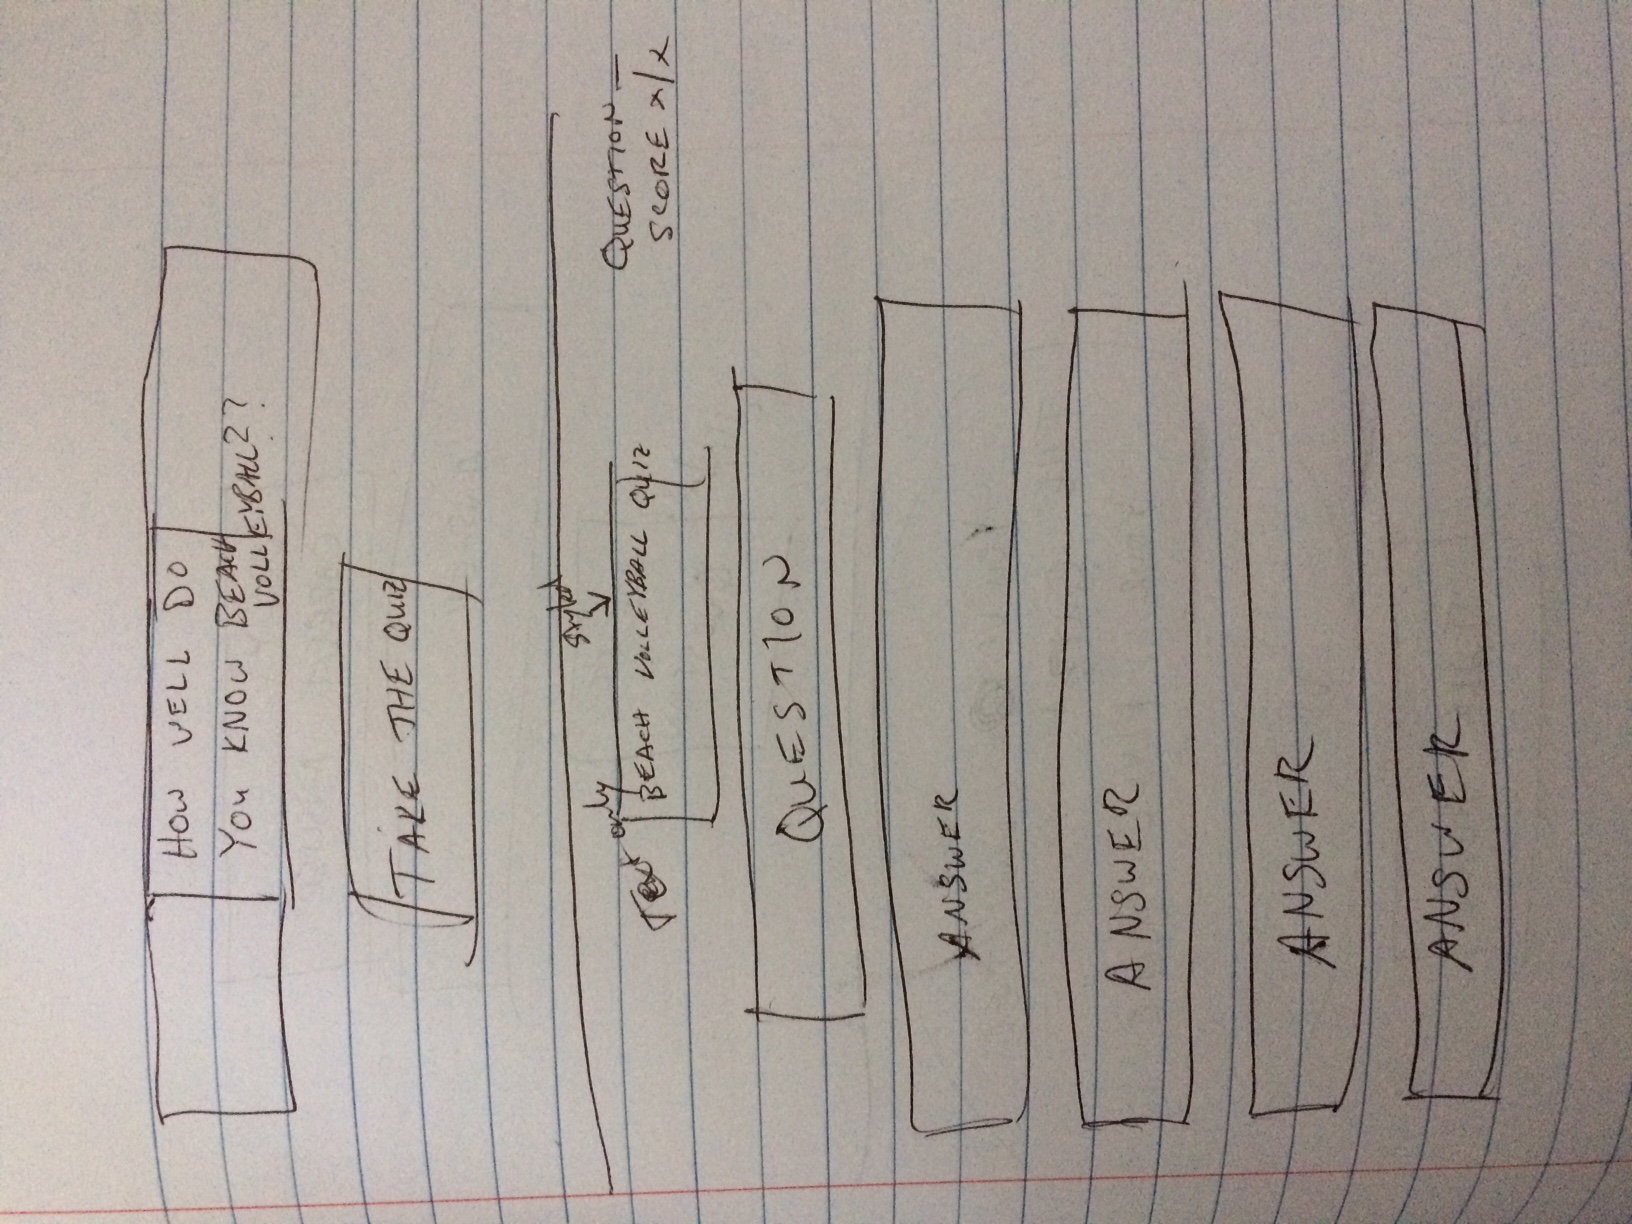 HOW WELL DO
YOU KNOW BEACH
VOLLEYBALL??
TAKE THE QUIZ
Styled
Text only
BEACH VOLLEYBALL QUIZ
QUESTION —
SCORE x/x
QUESTION
ANSWER
ANSWER
ANSWER
ANSWER